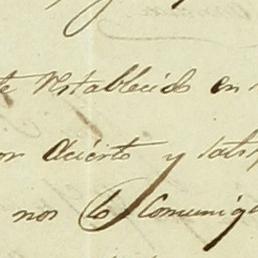 te establecido en
or acierto y satis
nos lo Comuniq